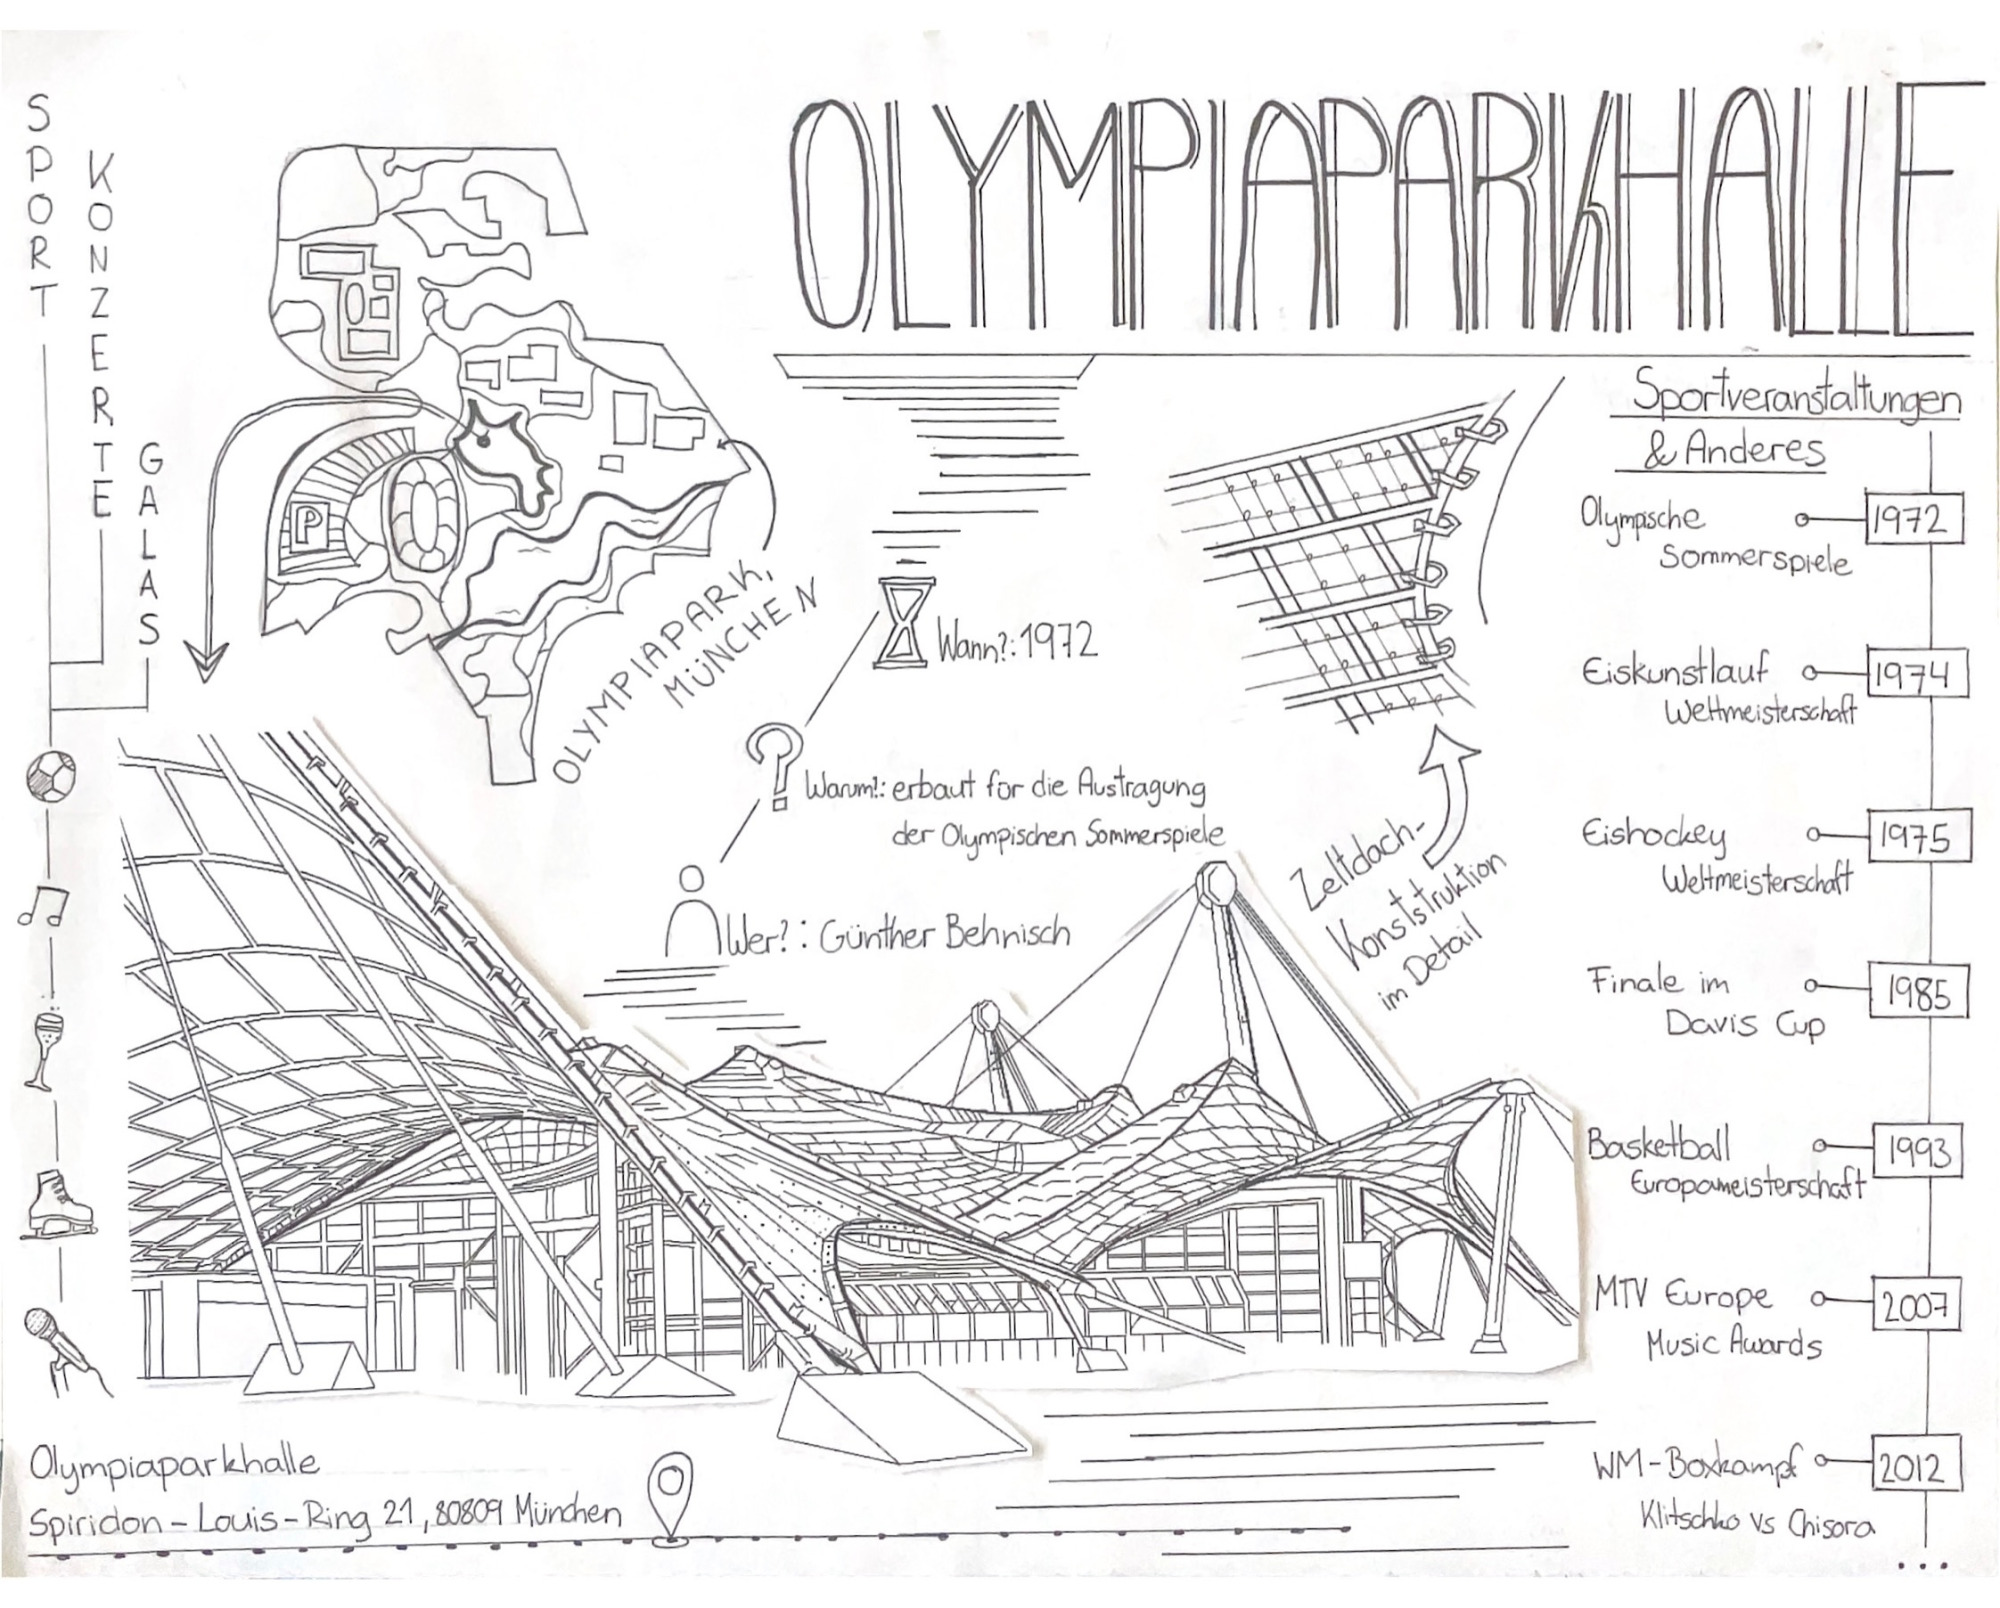 OLYMPIAPARKHALLE
SPORT
KONZERTE
GALAS
P
OLYMPIAPARK,
MÜNCHEN
Wann?: 1972
Warum?: erbaut für die Austragung
der Olympischen Sommerspiele
Wer?: Günther Behnisch
Zeltdach-
Konststruktion
im Detail
Sportveranstaltungen
& Anderes
Olympische 1972
Sommerspiele
Eiskunstlauf 1974
Weltmeisterschaft
Eishockey 1975
Weltmeisterschaft
Finale im 1985
Davis Cup
Basketball 1993
Europameisterschaft
MTV Europe 2007
Music Awards
WM-Boxkampf 2012
Klitschko vs Chisora
...
Olympiaparkhalle
Spiridon-Louis-Ring 21, 80809 München